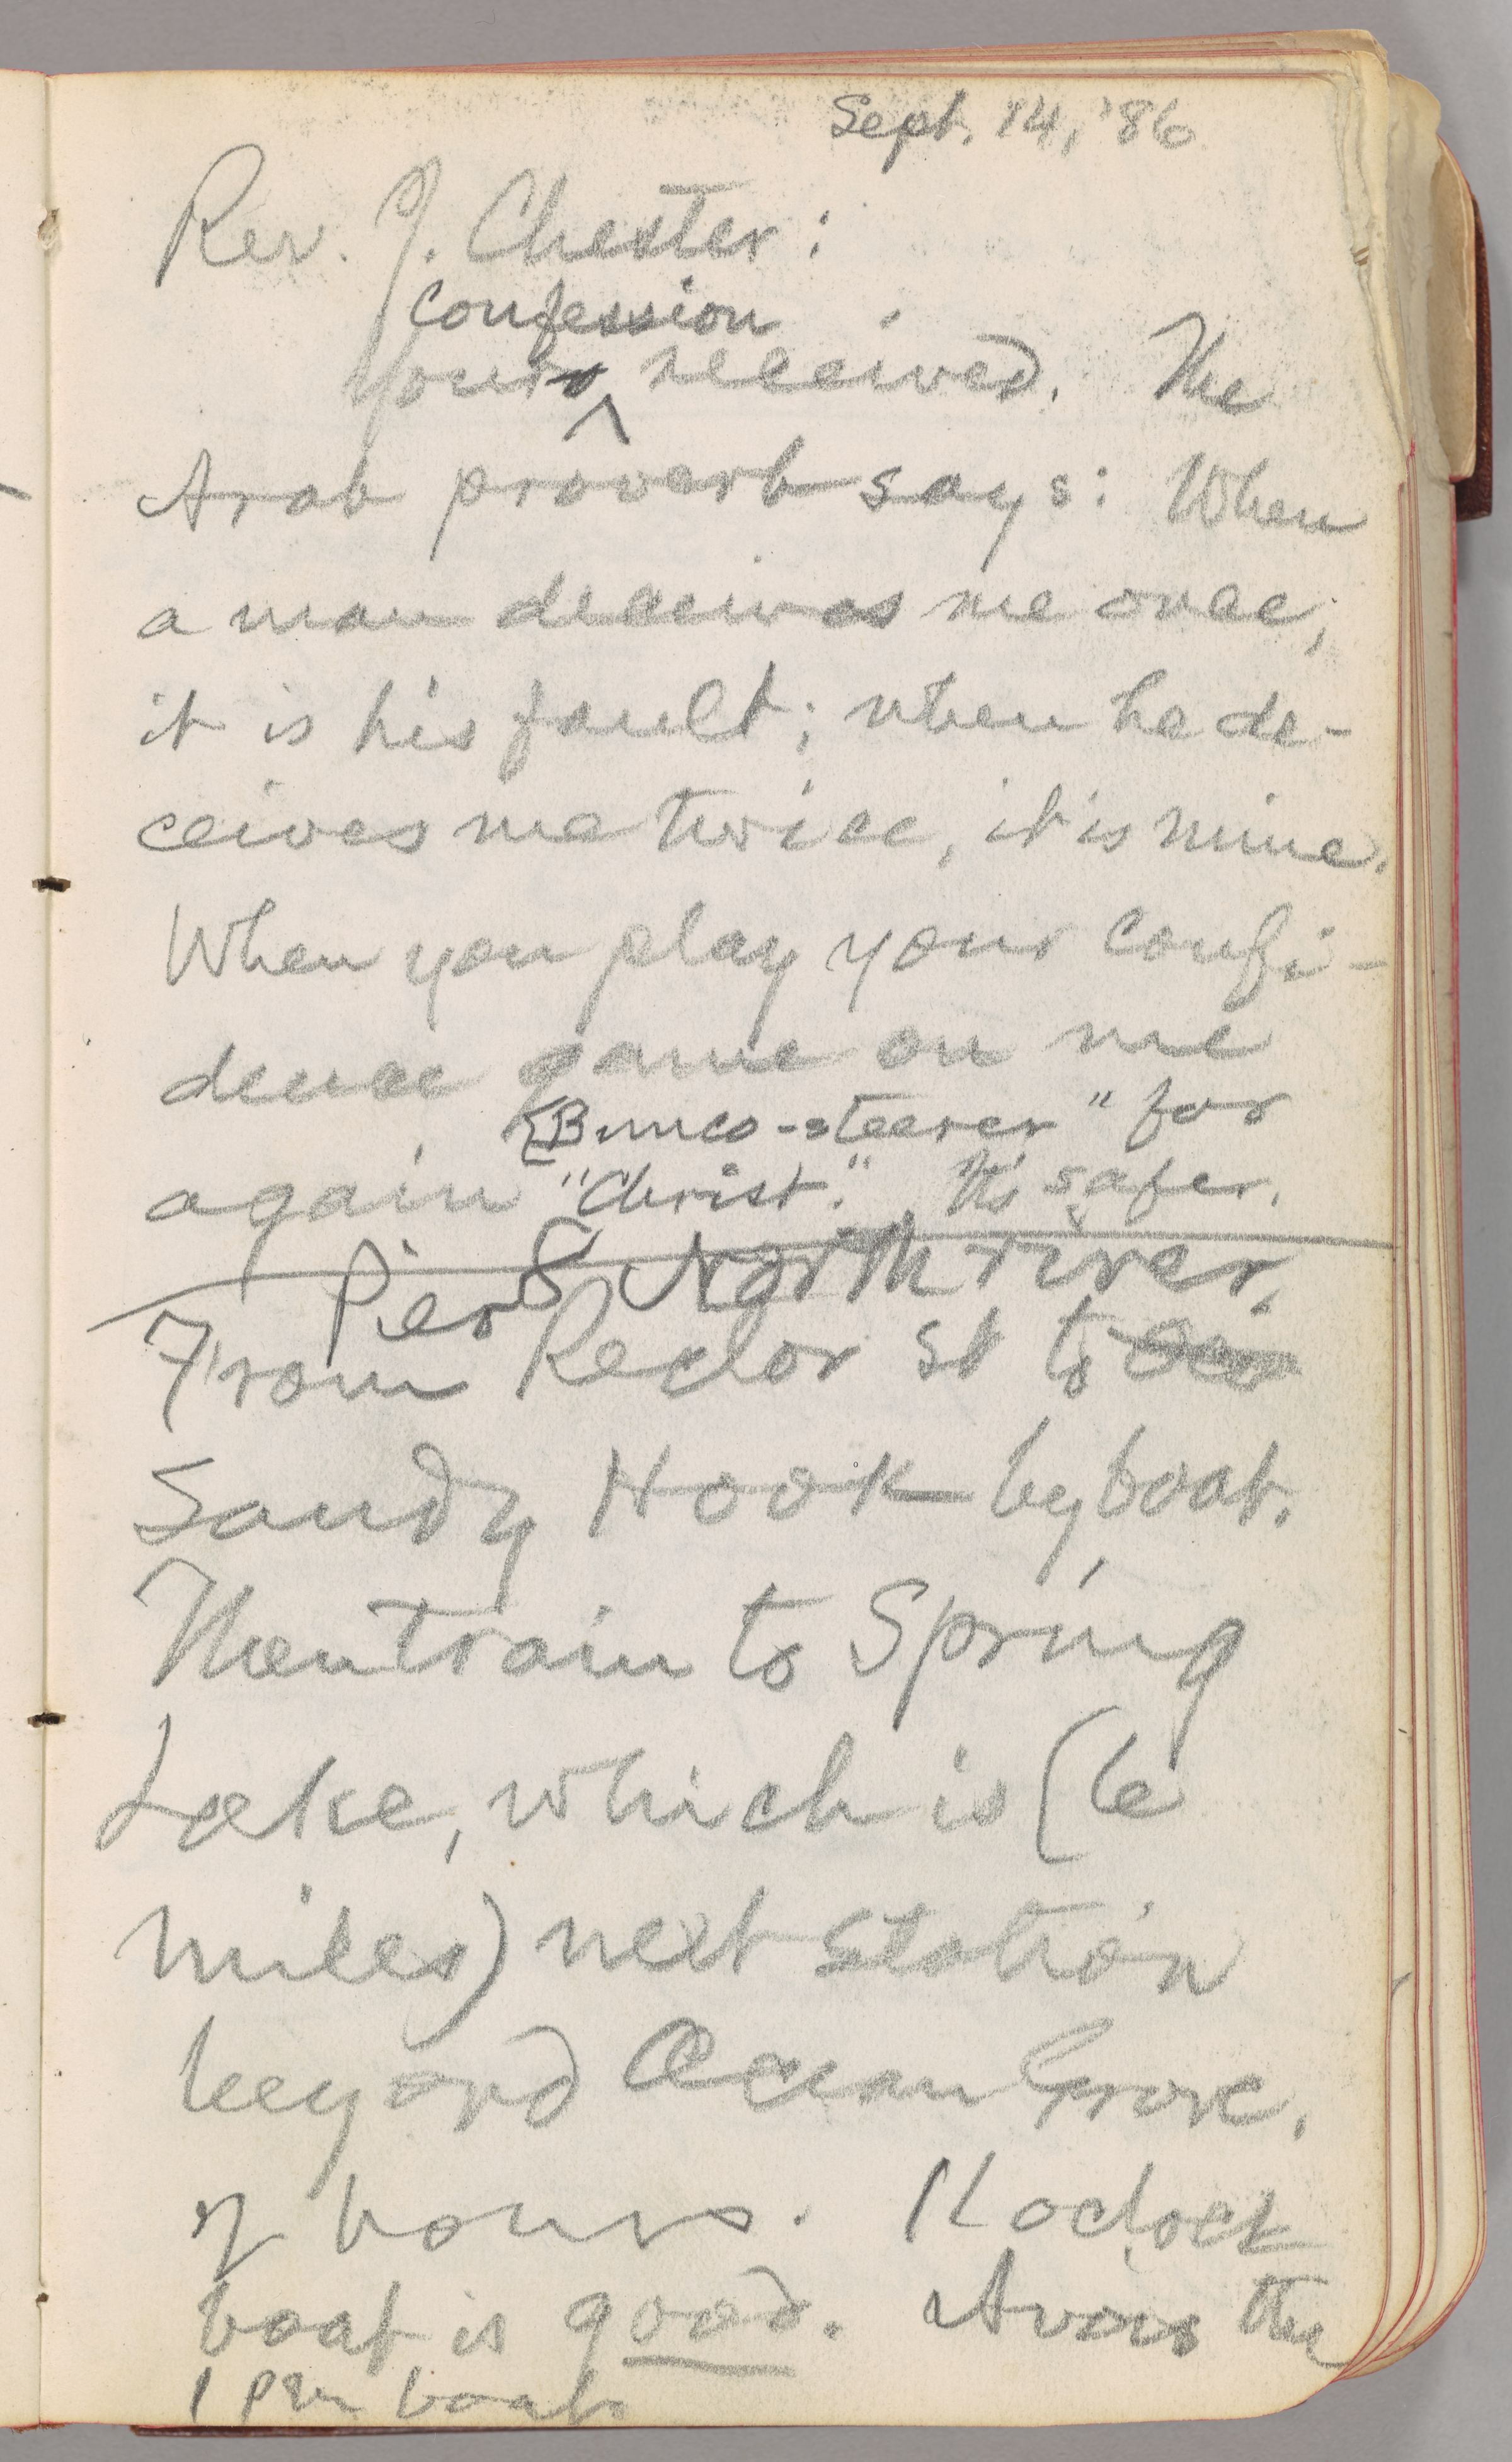 Sept. 14, '86
Rev. J. Chester:
Confession
Your received. The
Arab proverb says: When
a man deceives me once,
it is his fault; when he de-
ceives me twice, it is mine.
When you play your confi-
dence game on me
"Bunco-steerer" for
again "Christ." It's safer.
Pier 8 North river.
From Rector st to
Sandy Hook by boat.
Then train to Spring
Lake, which is (6
miles) next station
beyond Ocean Grove.
2 hours. 11 oclock
boat is good. Avoid the
1 PM boat